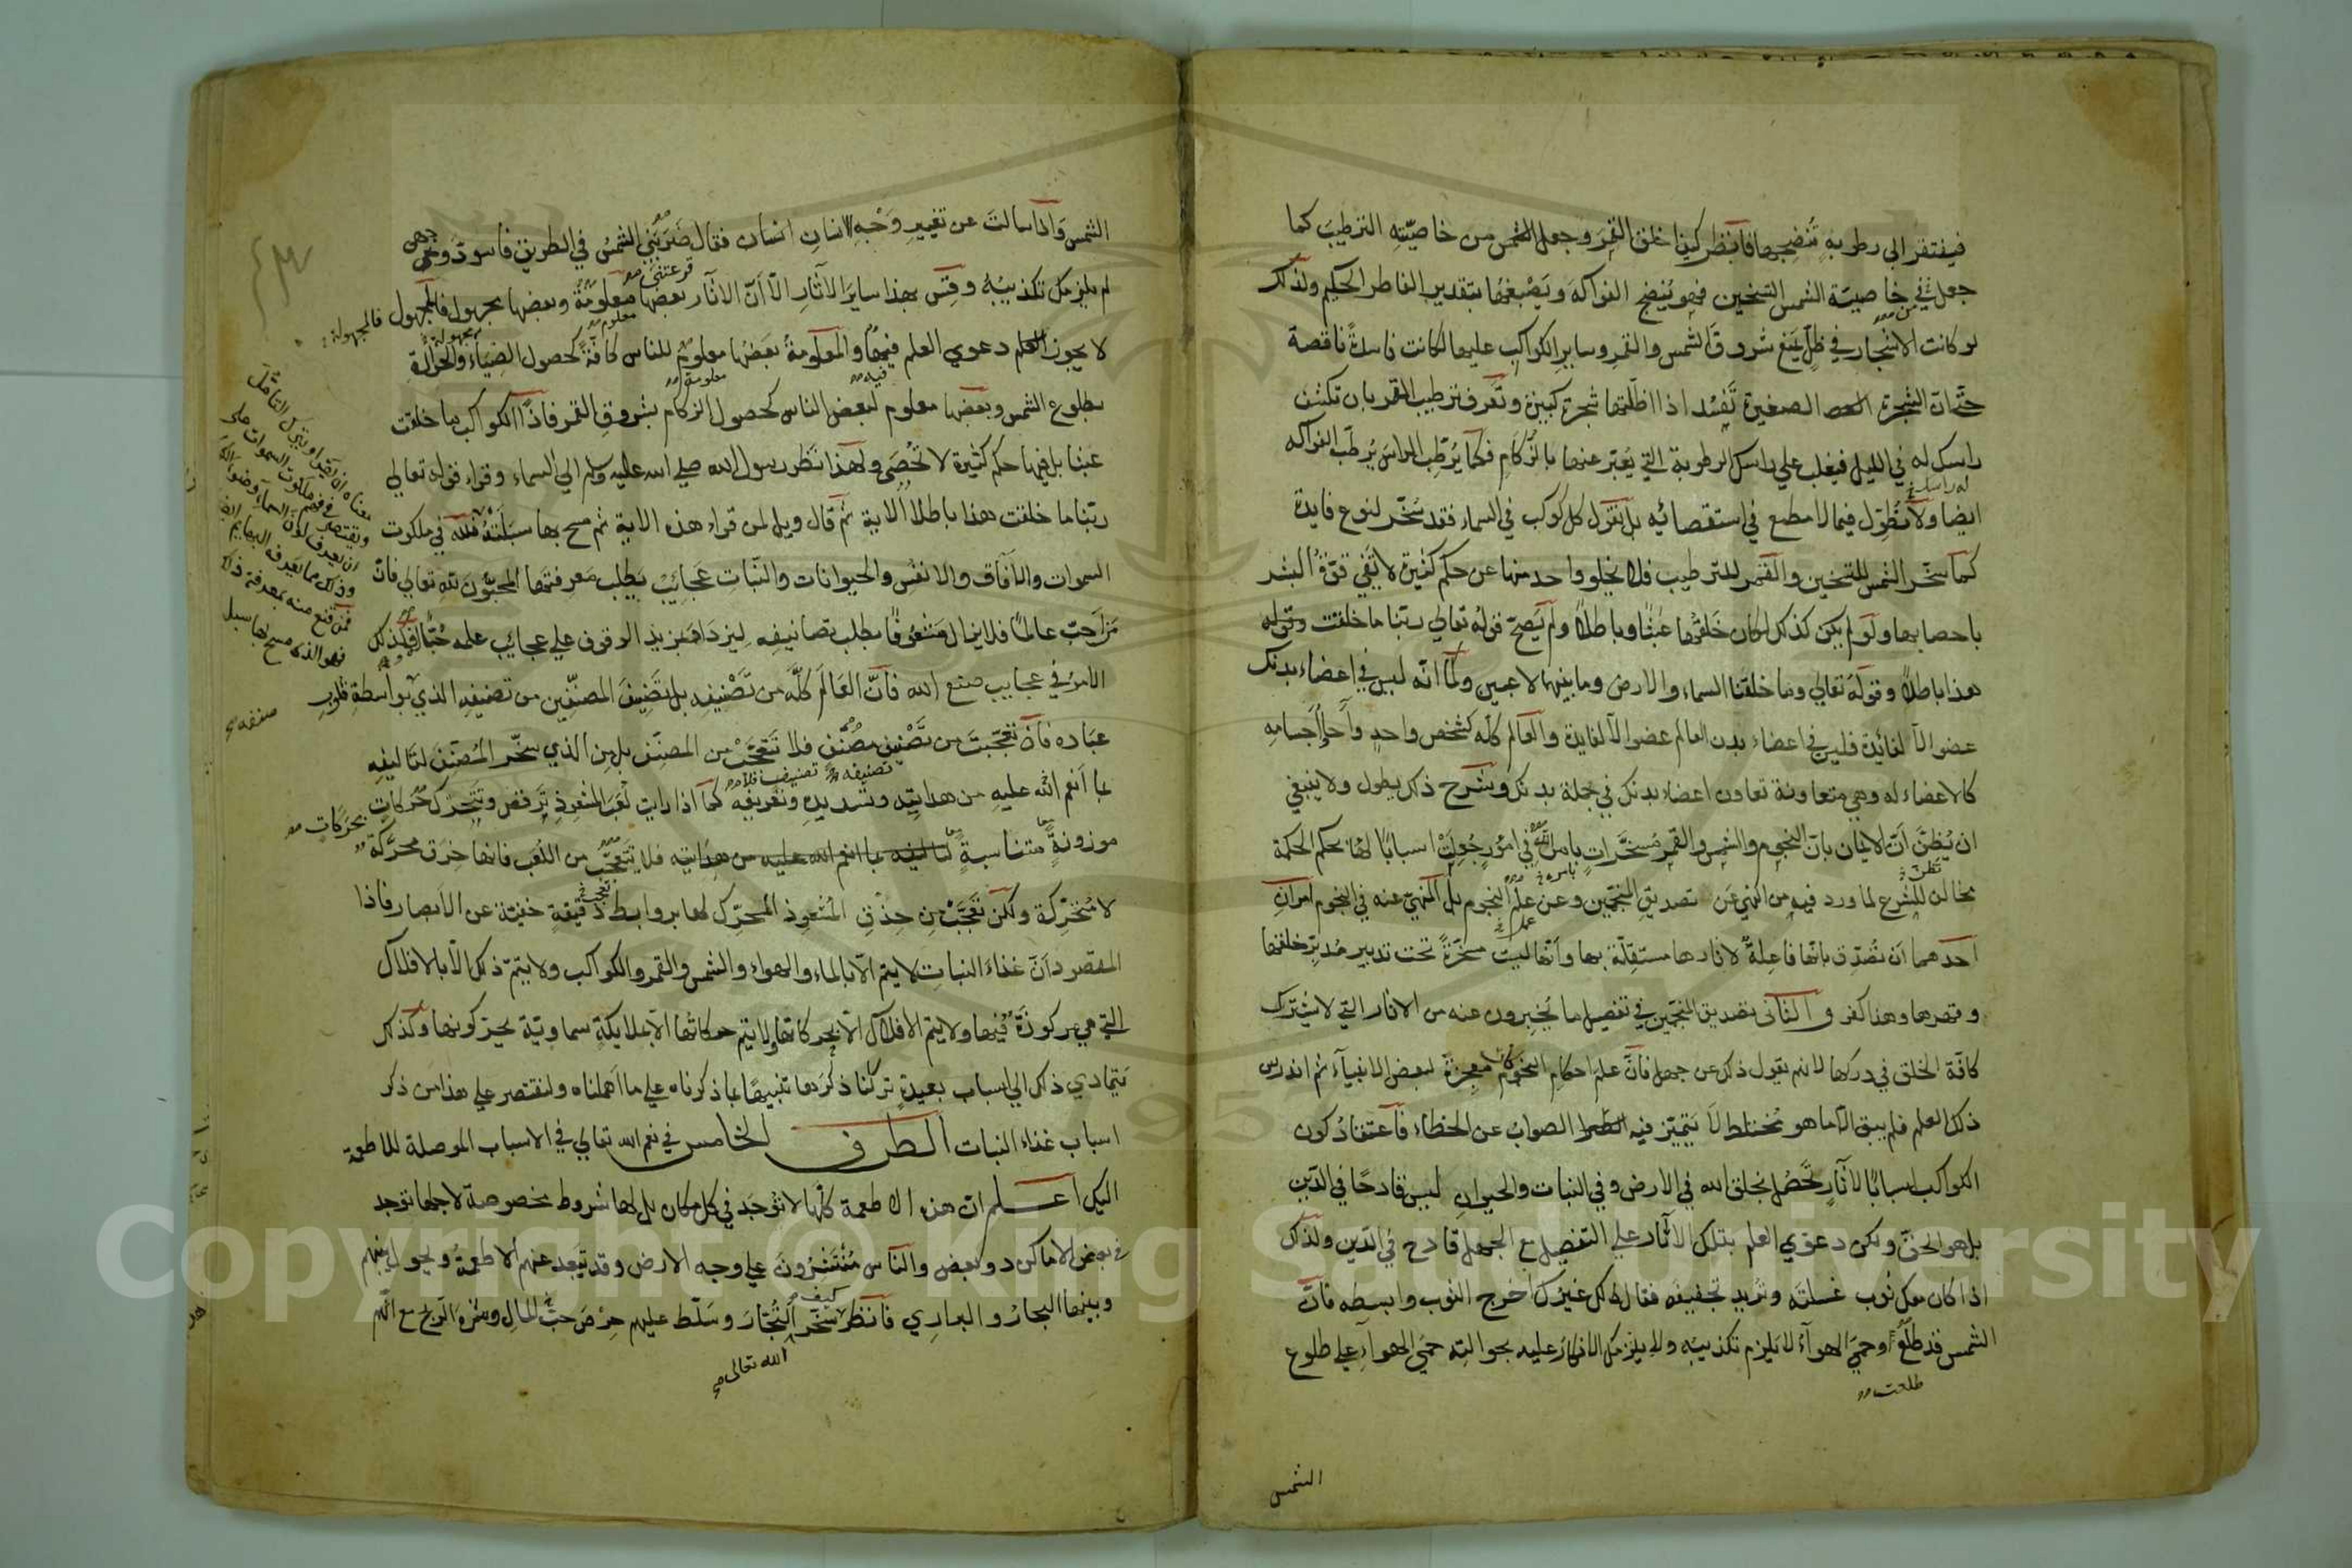 فيفتقر الى رطوبة تنضجها فانظر كيف خلق القمر وجعل من خاصيته الترطيب كما
جعل من خاصية الشمس التسخين فهو ينضج الفواكه ويصبغها بتقدير الفاطر الحكيم ولذلك
لو كانت الاشجار في ظل يمنع شروق الشمس والقمر وساير الكواكب عليها لكانت فاسدة ناقصة
حتى ان الشجرة الصغيرة تفسد اذا اظلتها شجرة كبيرة وتعرف ترطيب القمر بان تكشف
راسك له في الليل فيغلب على راسك الرطوبة التي يعبر عنها بالزكام فكما يرطب الراس يرطب الفواكه
ايضا ولا نطول فيما لا مطمع في استقصائه بل نقول كل كوكب في السماء فقد سخر لنوع فايدة
كما سخر الشمس للتسخين والقمر للترطيب فلا يخلو واحد منها عن حكم كثيرة لا تفي قوة البشر
باحصايها ولو لم يكن كذلك لكان خلقها عبثا وباطلا ولم يصح قوله تعالى ربنا ما خلقت
هذا باطلا وقوله تعالى وما خلقنا السماء والارض وما بينهما لاعبين وكما انه ليس في اعضاء بدنك
عضو الا لفائدة فليس في اعضاء بدن العالم عضو الا لفايدة والعالم كله كشخص واحد واحاد اجسامه
كالاعضاء له وهي متعاونة تعاون اعضاء بدنك في جملة بدنك وشرح ذلك يطول ولا ينبغي
ان يظن ان الايمان بان النجوم والشمس والقمر مسخرات بامر الله في امور جعلت اسبابا لها بحكم الحكمة
مخالف للشرع لما ورد فيه من النهي عن تصديق المنجمين وعن علم النجوم بل المنهي عنه في النجوم امران
احدهما ان تصدق بانها فاعلة لاثارها مستقلة بها وانها ليست مسخرة تحت تدبير مدبر خلقها
وقهرها وهذا كفر والثاني تصديق المنجمين في تفصيل ما يخبرون عنه من الاثار التي لا يشترك
كافة الخلق في دركها لانهم يقولون ذلك عن جهل فان علم احكام النجوم كان معجزة لبعض الانبياء ثم اندرس
ذلك العلم فلم يبق الا ما هو مختلط لا يتميز فيه الصواب عن الخطاء فاعتقاد كون
الكواكب اسبابا لاثار تحصل بخلق الله في الارض وفي النبات والحيوان ليس قادحا في الدين
بل هو الحق ولكن دعوي العلم بتلك الاثار على التفصيل مع الجهل قادح في الدين ولذلك
اذا كان معك ثوب غسلته وتريد تجفيفه فقال لك غيرك اخرج الثوب وابسطه فان
الشمس قد طلع وحمي الهواء لا يلزم تكذيبه ولا يلزمك الانكار عليه بحوالته حمي الهواء على طلوع
طلعت
الشمس
الشمس واذا سالت عن تغيير وجه الانسان انسان فقال ضربتني الشمس في الطريق فاسود وجهي
لم يلزمك تكذيبه وقس بهذا ساير الاثار الا ان الاثار بعضها معلومة وبعضها مجهول فالمجهول
لا يجوز دعوي العلم فيها والمعلومة بعضها معلوم للناس كافة كحصول الضياء والحرارة
بطلوع الشمس وبعضها معلوم لبعض الناس كحصول الزكام بشروق القمر فاذا الكواكب ما خلقت
عبثا بل فيها حكم كثيرة لا تحصى ولهذا نظر رسول الله صلى الله عليه وسلم الي السماء وقراء قوله تعالى
ربنا ما خلقت هذا باطلا الاية ثم قال ويل لمن قراء هذه الاية ثم مسح بها سبلته فلله في ملكوت
السموات والافاق والانفس والحيوانات والنبات عجايب يطلب معرفتها المحبون لله تعالى فان
من احب عالما فلا يزال مشغوفا بطلب تصانيفه ليزداد بمزيد الوقوف على عجائب علمه حبا له فكذلك
الامر في عجايب صنع الله فان العالم كله من تصنيفه بل تصنيف المصنفين من تصنيفه الذي بواسطة قلوب
عباده فان تعجبت من تصنيف مصنف فلا تتعجب من المصنف بل من الذي سخر المصنف لتاليفه
بما انعم الله عليه من هدايته وتسديده وتعريفه كما اذا رايت لعب المشعوذ ترقص وتتحرك حركات
موزونة متناسبة فلا تتعجب من اللعب فانها خرق محركة
لا متحركة ولكن تعجب من حذق المشعوذ المحرك لها بروابط دقيقة خفية عن الابصار فاذا
المقصود ان غذاء النبات لا يتم الا بالماء والهواء والشمس والقمر والكواكب ولا يتم ذلك الا بالافلاك
التي هي مركوزة فيها ولا يتم الافلاك الا بحركاتها ولا يتم حركاتها الا بملايكة سماوية يحركونها وكذلك
يتمادي ذلك الي اسباب بعيدة تركنا ذكرها تنبيها بما ذكرناه على ما اهملناه ولنقتصر على هذا من ذكر
اسباب غذاء النبات الطرف الخامس في نعم الله تعالى في الاسباب الموصلة للاطعمة
اليك اعلم ان هذه الاطعمة كلها لا توجد في كل مكان بل لها شروط مخصوصة لاجلها توجد
في بعض الاماكن دون بعض والناس منتشرون على وجه الارض وقد تبعد عنهم الاطعمة ويحول بينهم
وبينها البحار والبراري فانظر كيف سخر التجار وسلط عليهم حرص حب المال وشره الربح مع انهم
الله تعالى
فالمجهولة
بحركات